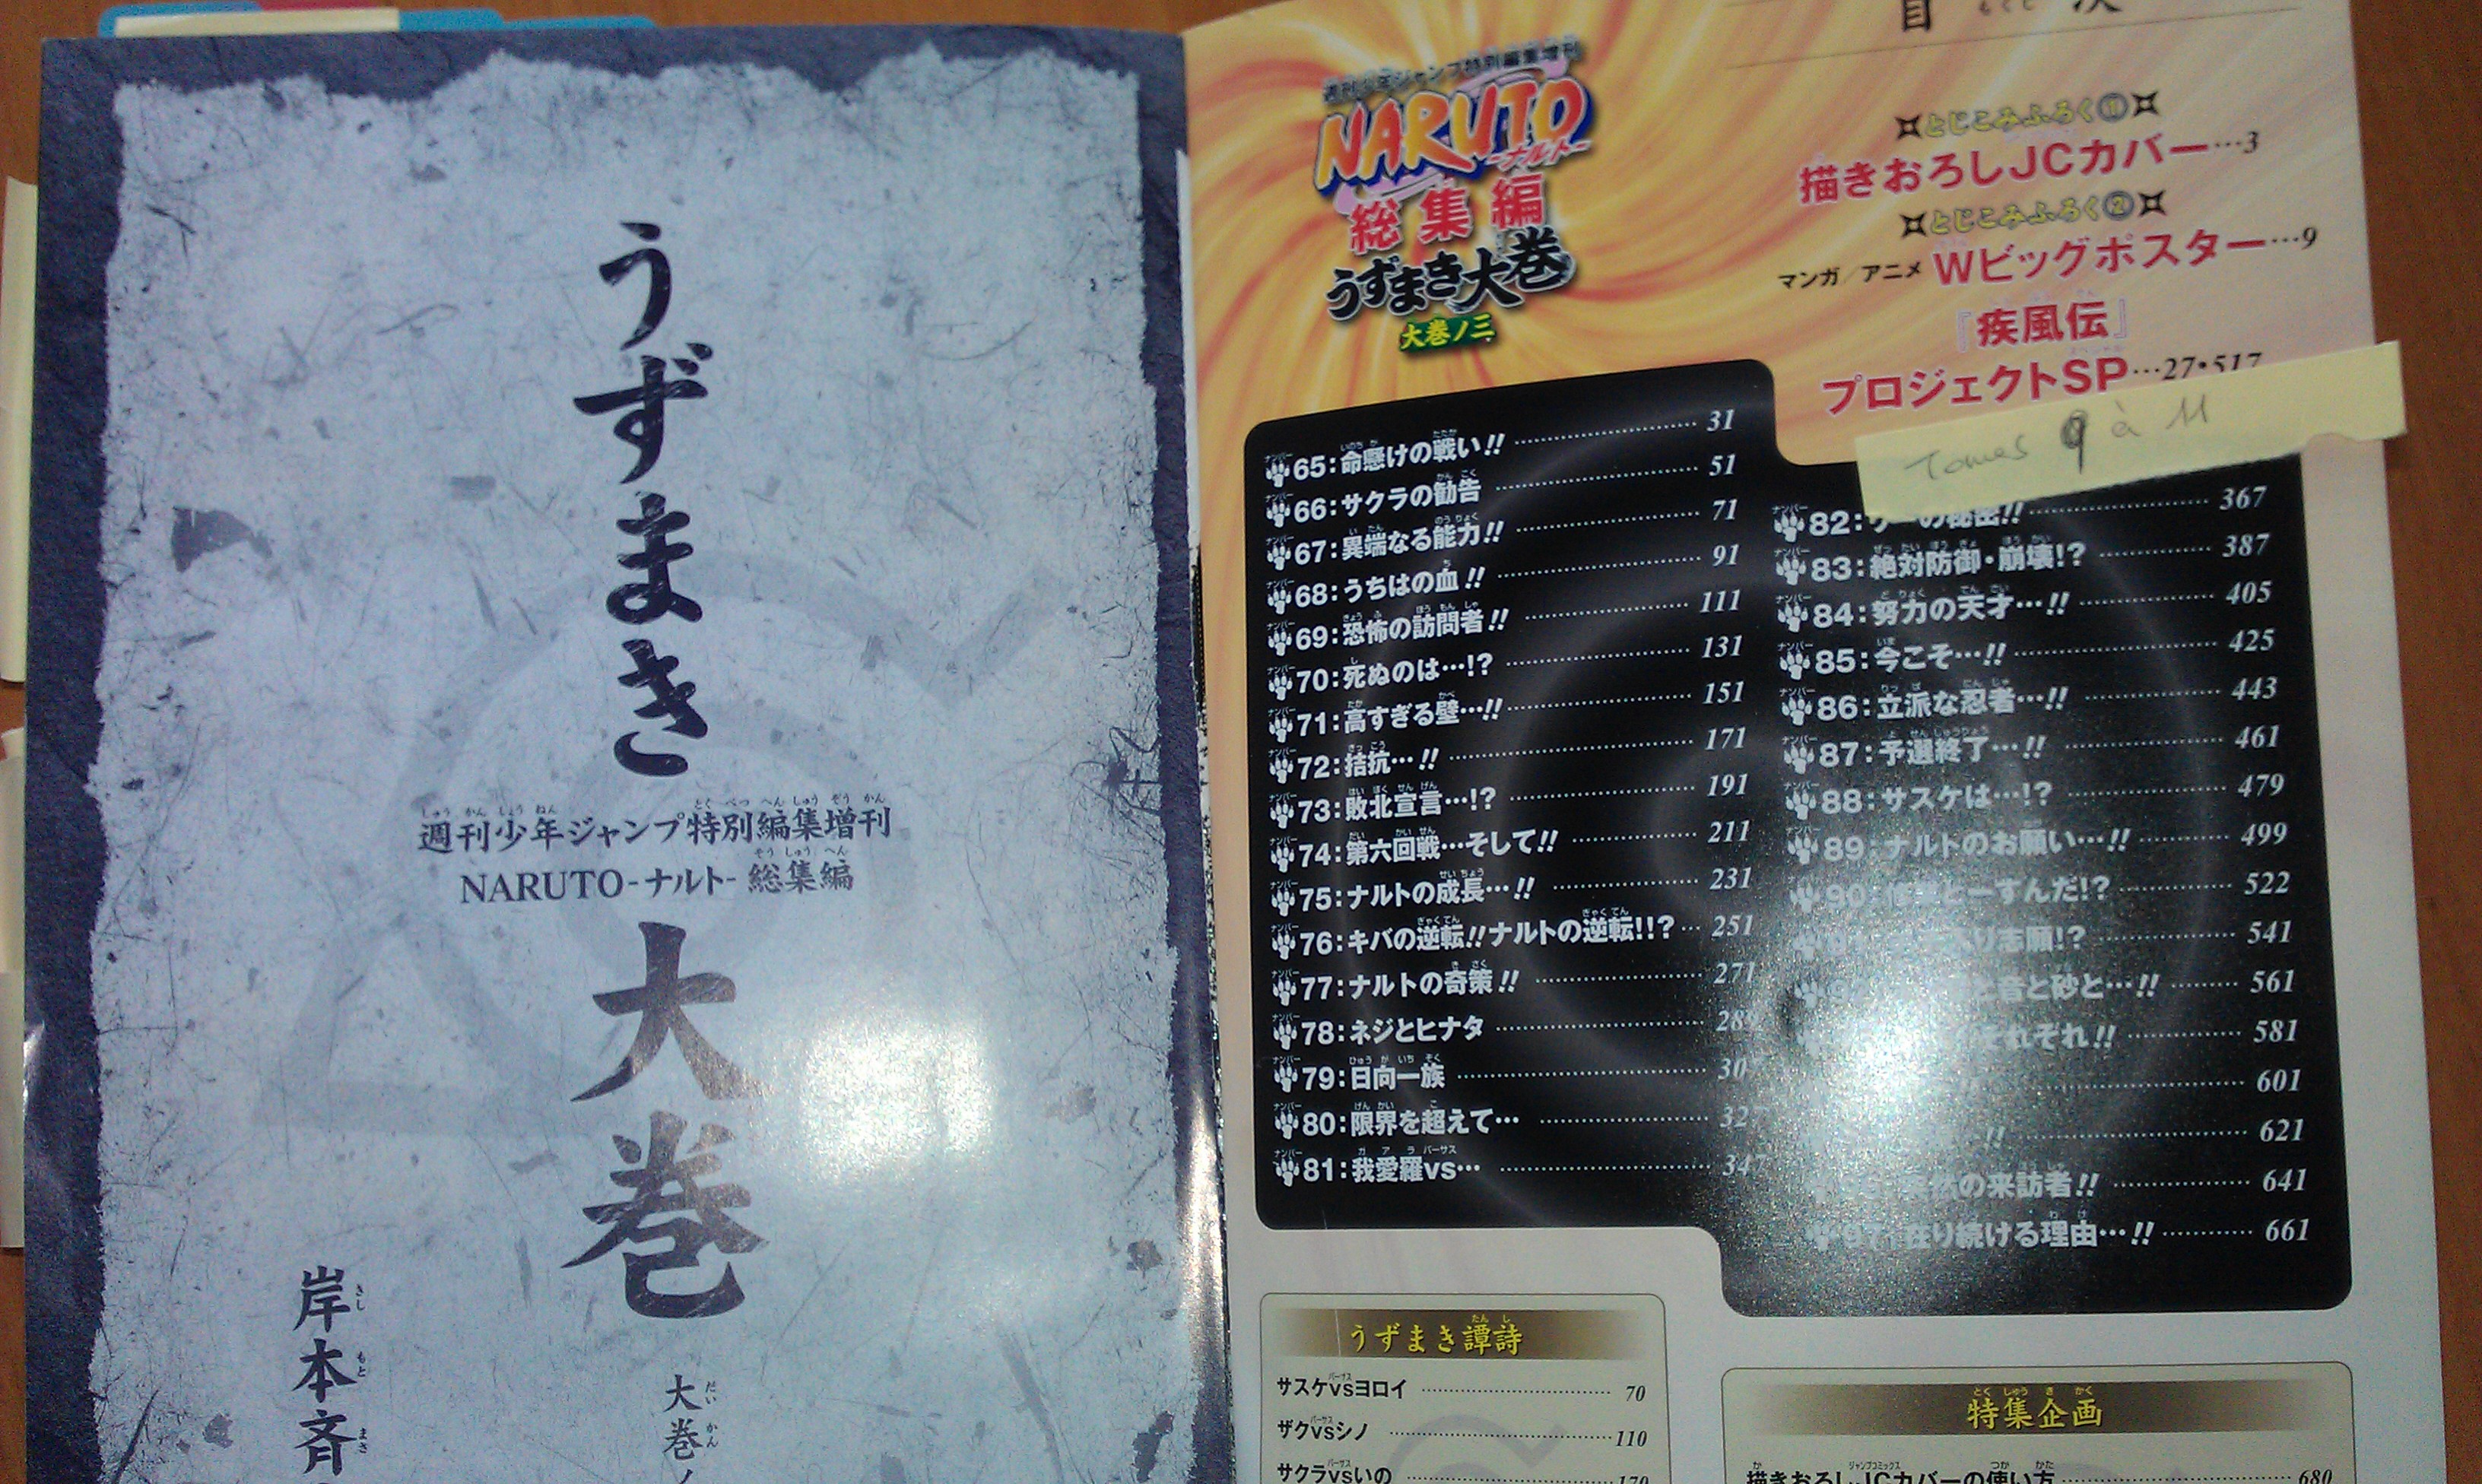 うずまき
週刊少年ジャンプ特別編集増刊
NARUTO-ナルト- 総集編
大巻
大巻ノ
岸本斉
目次
週刊少年ジャンプ特別編集増刊
NARUTO
-ナルト-
総集編
うずまき大巻
大巻ノ三
とじこみふろく①
描きおろしJCカバー…3
とじこみふろく②
マンガ/アニメ Wビッグポスター…9
『疾風伝』
プロジェクトSP…27・517
Tomes 9 à 11
ナンバー65:命懸けの戦い!! 31
ナンバー66:サクラの勧告 51
ナンバー67:異端なる能力!! 71
ナンバー68:うちはの血!! 91
ナンバー69:恐怖の訪問者!! 111
ナンバー70:死ぬのは…!? 131
ナンバー71:高すぎる壁…!! 151
ナンバー72:拮抗…!! 171
ナンバー73:敗北宣言…!? 191
ナンバー74:第六回戦…そして!! 211
ナンバー75:ナルトの成長…!! 231
ナンバー76:キバの逆転!!ナルトの逆転!!? 251
ナンバー77:ナルトの奇策!! 271
ナンバー78:ネジとヒナタ 289
ナンバー79:日向一族 307
ナンバー80:限界を超えて… 327
ナンバー81:我愛羅vs… 347
ナンバー82: の秘密!! 367
ナンバー83:絶対防御・崩壊!? 387
ナンバー84:努力の天才…!! 405
ナンバー85:今こそ…!! 425
ナンバー86:立派な忍者…!! 443
ナンバー87:予選終了…!! 461
ナンバー88:サスケは…!? 479
ナンバー89:ナルトのお願い…!! 499
ナンバー90: どーすんだ!? 522
志願!? 541
と音と砂と…!! 561
それぞれ!! 581
601
…!! 621
の来訪者!! 641
97:在り続ける理由…!! 661
うずまき譚詩
サスケvsヨロイ 70
ザクvsシノ 110
サクラvsいの 170
特集企画
描きおろしJCカバーの使い方 680